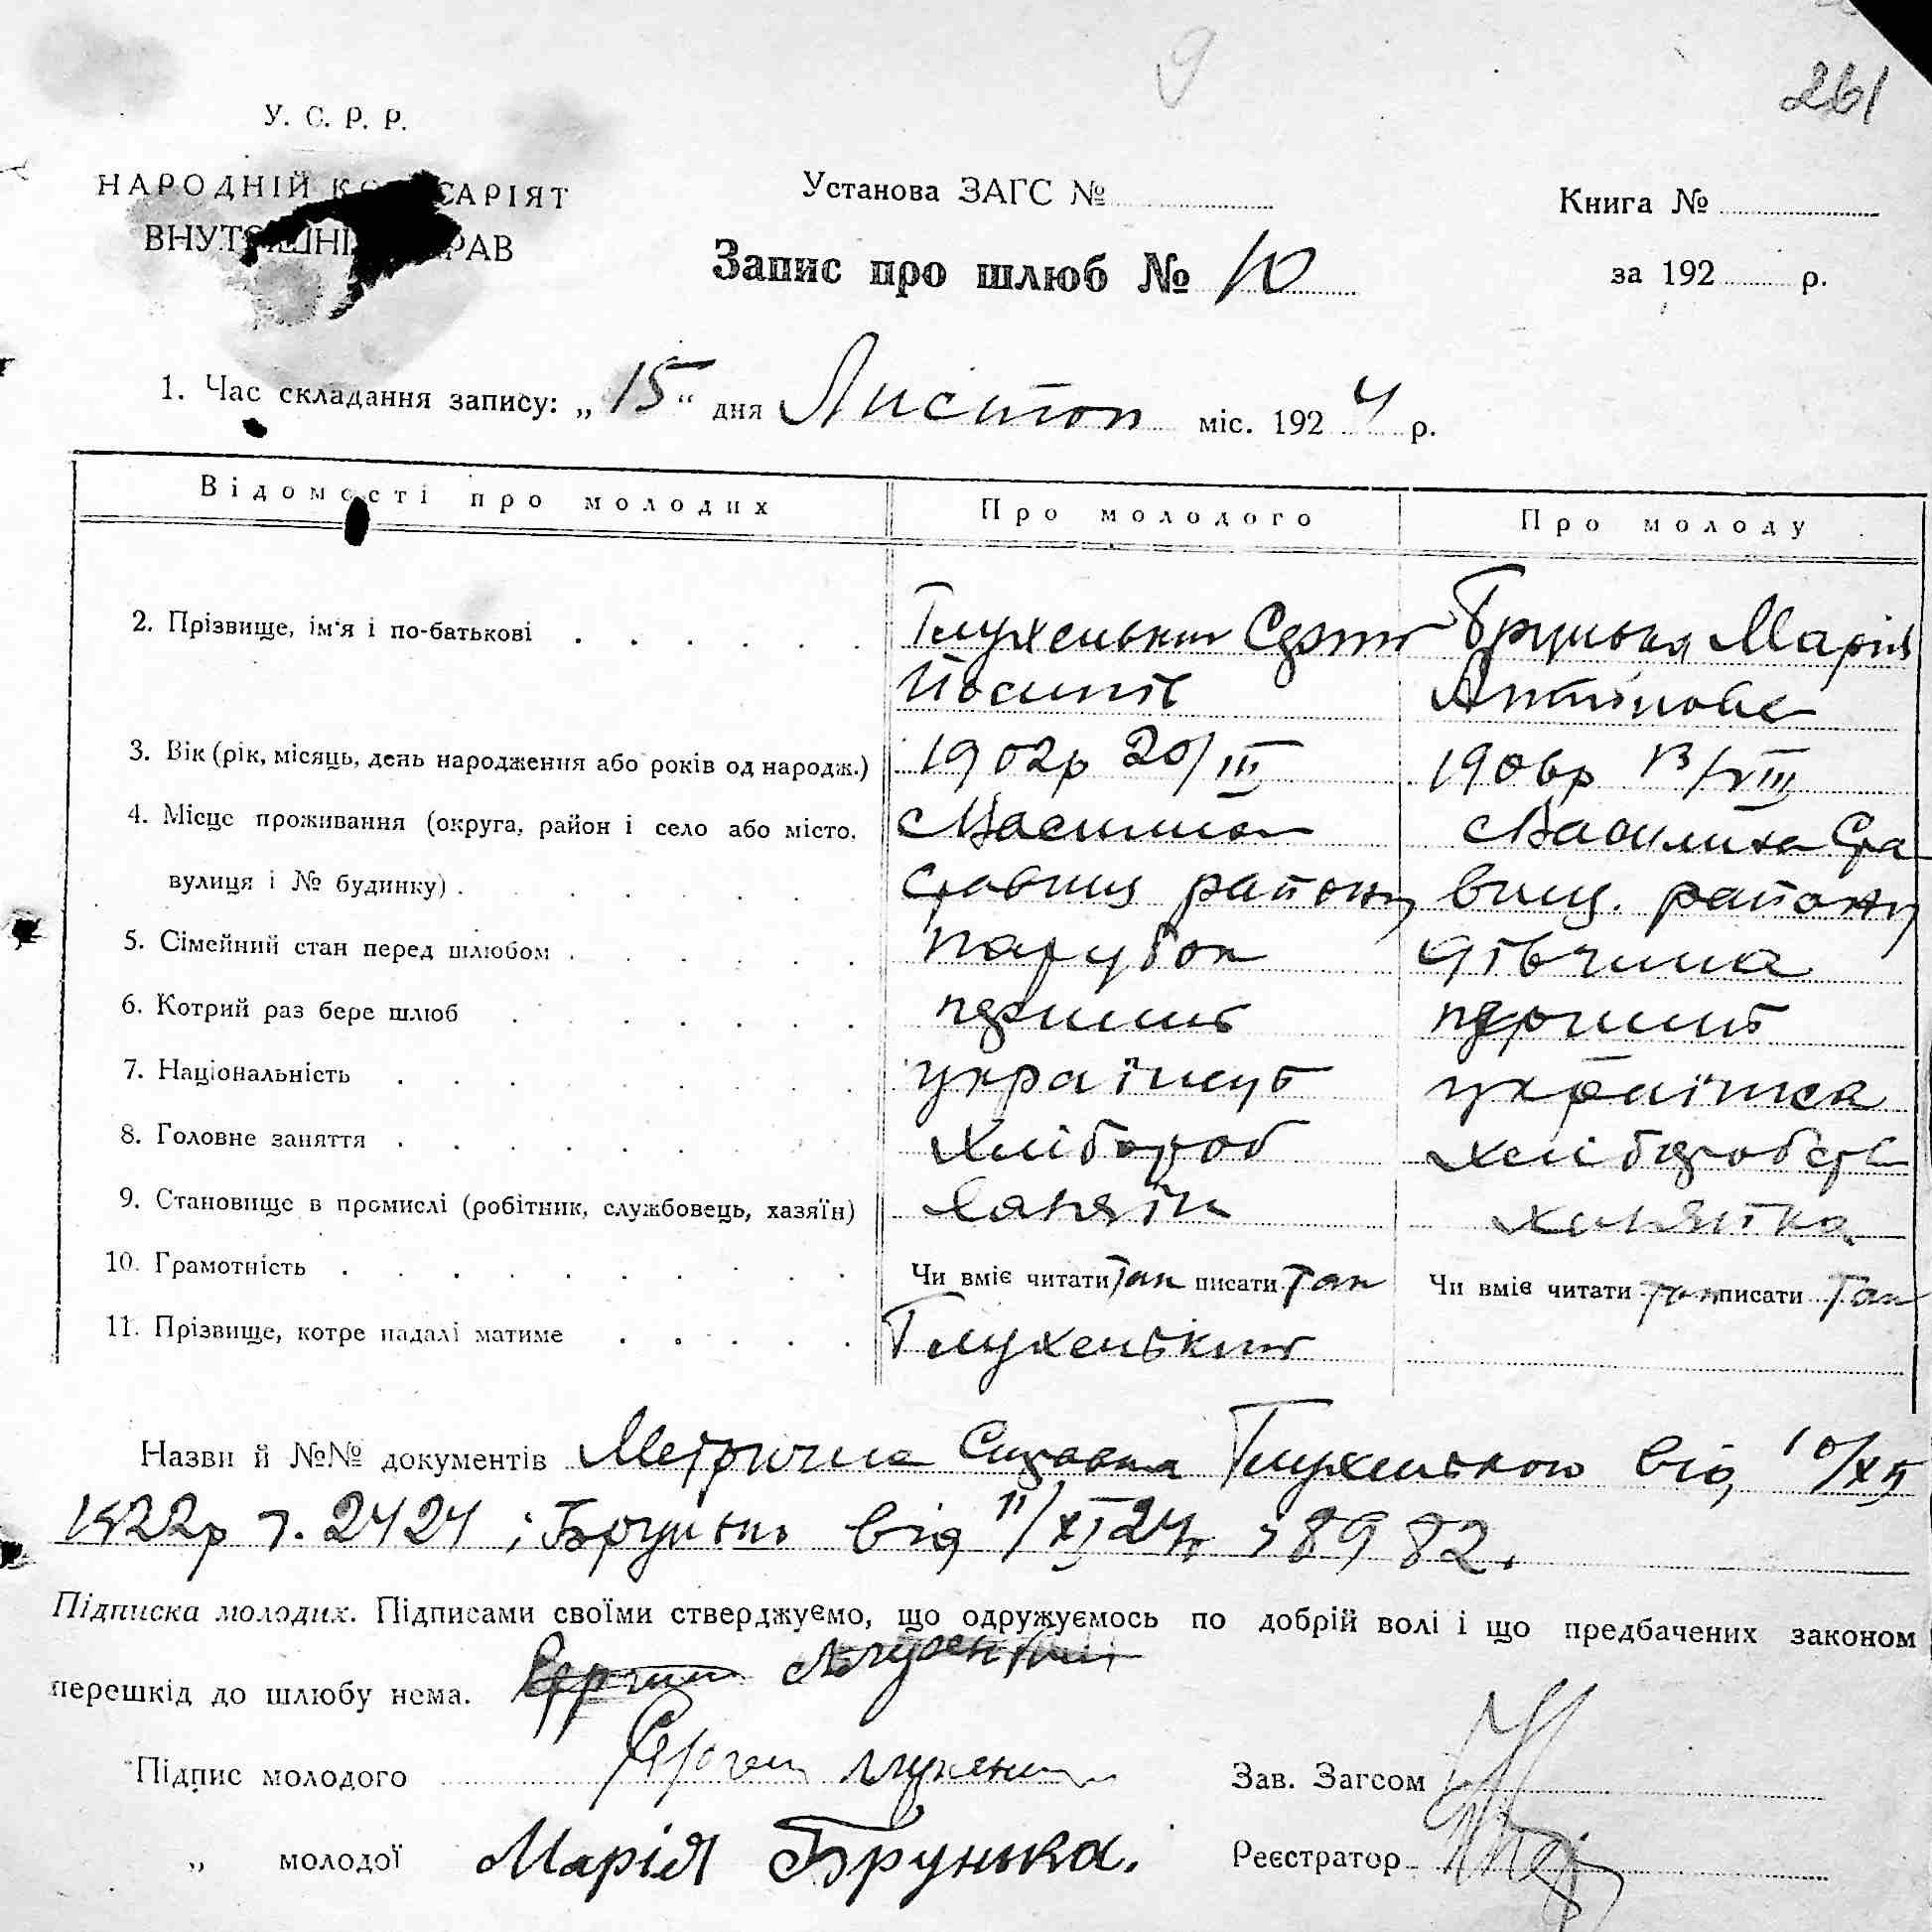 9
261
У. С. Р. Р.
НАРОДНІЙ К САРІЯТ
ВНУТ РАВ
Установа ЗАГС №
Книга №
Запис про шлюб № 10
за 192 р.
1. Час складання запису: „15“ дня Листоп міс. 1924 р.
Відомості про молодих Про молодого Про молоду
2. Прізвище, ім'я і по-батькові Глухенький Брунька Марія
Йосипів Антинова
3. Вік (рік, місяць, день народження або років од народж.) 1902р 20/III 1906р 13/VIII
4. Місце проживання (округа, район і село або місто, Василиха Ста
вулиця і № будинку) Ставищ району вищ. району
5. Сімейний стан перед шлюбом парубок дівчина
6. Котрий раз бере шлюб перший перший
7. Національність українець українка
8. Головне заняття хлібороб
9. Становище в промислі (робітник, службовець, хазяїн) Хазяїн хазяйка
10. Грамотність Чи вміє читати Так писати Так Чи вміє читати Так писати Так
11. Прізвище, котре надалі матиме Глухенький
Назви й №№ документів Метрична Справка Глухенького від 10/XII
1922р 2424 і Брунька від 11/XI 24р 8982.
Підписка молодих. Підписами своїми стверджуємо, що одружуємось по добрій волі і що предбачених законом
перешкід до шлюбу нема.
Підпис молодого Зав. Загсом
„ молодої Марія Брунька. Реєстратор